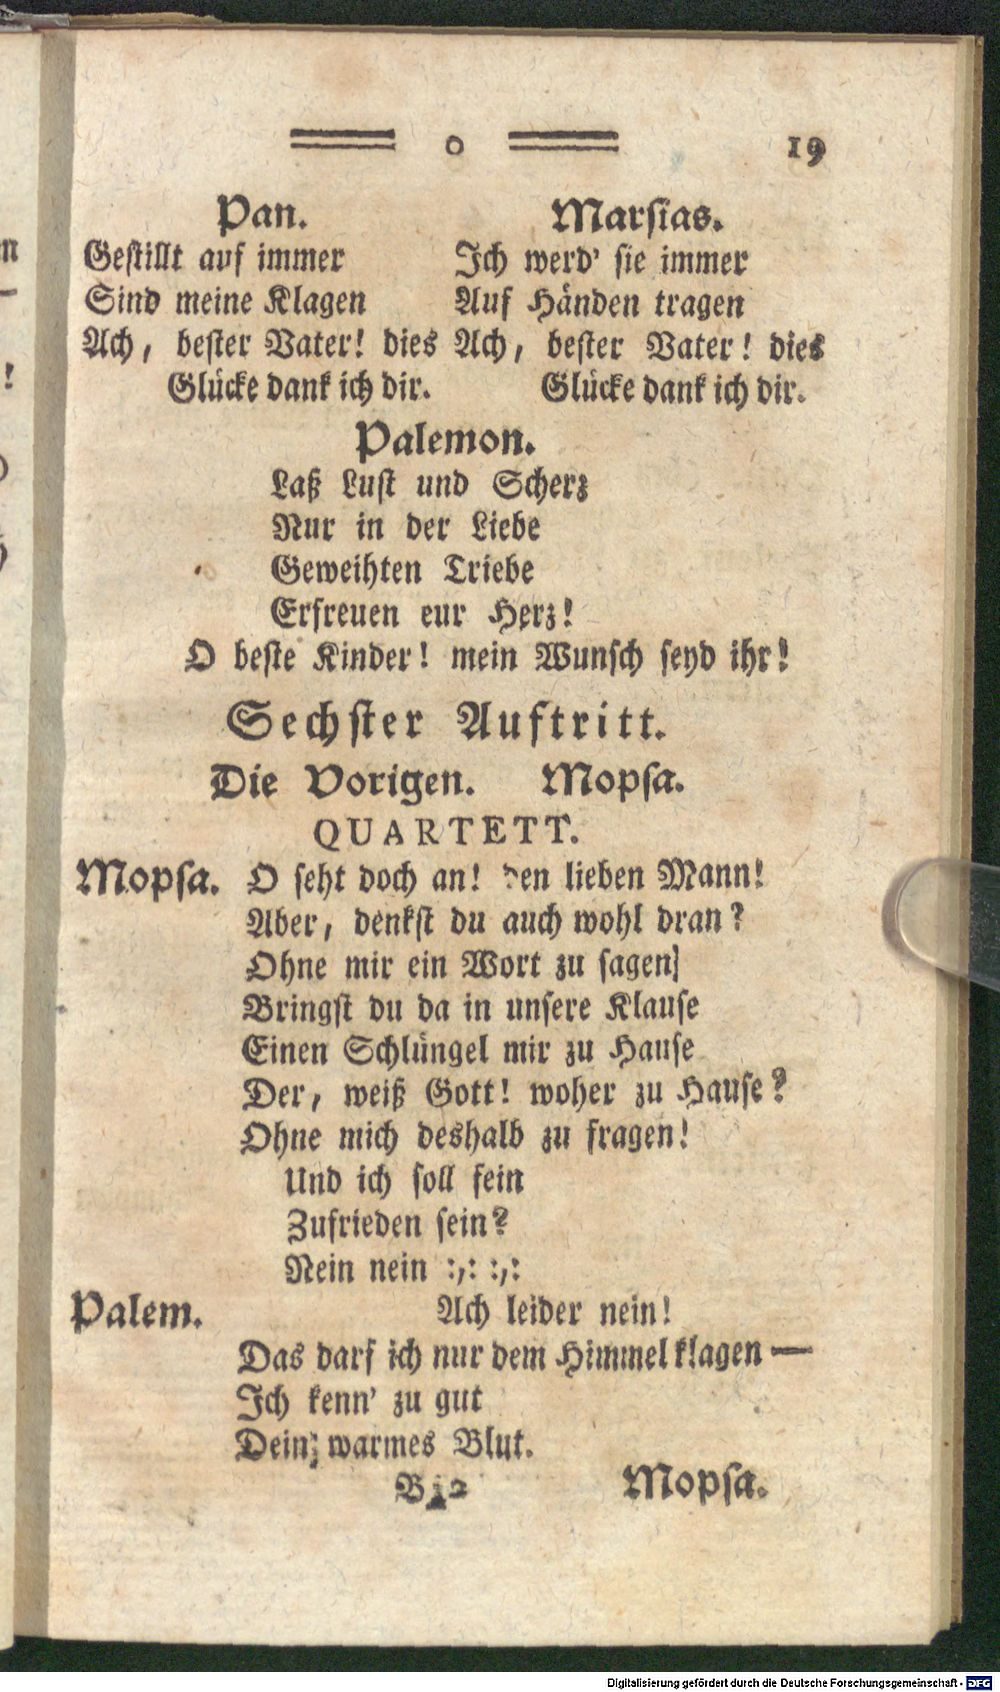 0 19
Pan. Marsias.
Gestillt auf immer Ich werd' sie immer
Sind meine Klagen Auf Händen tragen
Ach, bester Vater! dies Ach, bester Vater! dies
Glücke dank ich dir. Glücke dank ich dir.
Palemon.
Laß Lust und Scherz
Nur in der Liebe
Geweihten Triebe
Erfreuen eur Herz!
O beste Kinder! mein Wunsch seyd ihr!
Sechster Auftritt.
Die Vorigen. Mopsa.
QUARTETT.
Mopsa. O seht doch an! den lieben Mann!
Aber, denkst du auch wohl dran?
Ohne mir ein Wort zu sagen
Bringst du da in unsere Klause
Einen Schlüngel mir zu Hause
Der, weiß Gott! woher zu Hause?
Ohne mich deshalb zu fragen!
Und ich soll fein
Zufrieden sein?
Nein nein :,: :,:
Palem. Ach leider nein!
Das darf ich nur dem Himmel klagen —
Ich kenn' zu gut
Dein warmes Blut.
B 2 Mopsa.
Digitalisierung gefördert durch die Deutsche Forschungsgemeinschaft - DFG